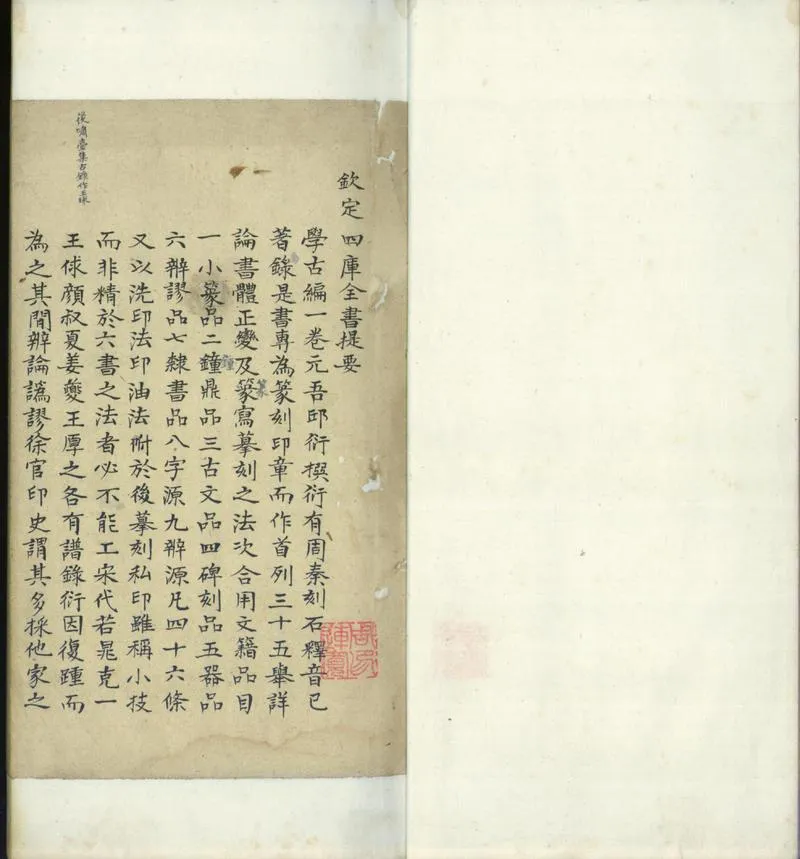 欽定四庫全書提要
學古編一卷元吾邱衍撰衍有周秦刻石釋音已
著錄是書專為篆刻印章而作首列三十五舉詳
論書體正變及篆寫摹刻之法次合用文籍品目
篆
一小篆品二鐘鼎品三古文品四碑刻品五器品
鐘
六辨謬品七隸書品八字源九辨源凡四十六條
又以洗印法印油法附於後摹刻私印雖稱小技
而非精於六書之法者必不能工宋代若晁克一
王俅顏叔夏姜夔王厚之各有譜錄衍因復踵而
為之其間辨論譌謬徐官印史謂其多採他家之
後嘯臺集古錄作王球